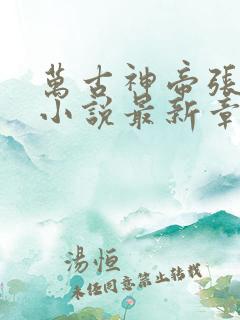 萬古神帝張
小說最新章
湯恒
未经同意禁止转载